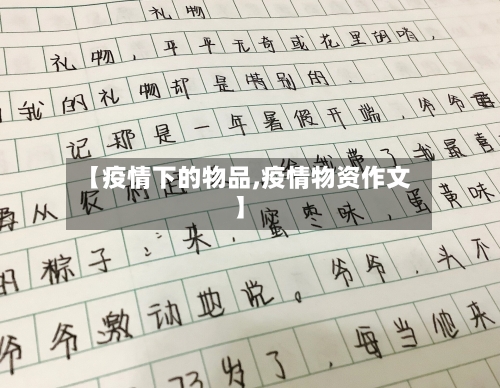 礼物
礼物，平平无奇或花里胡哨，
我的礼物却是特别的．
记那是一年暑假开端，爷爷
【疫情下的物品,疫情物资作文
】
给我带了我最喜
从农村
的粽子 来，蜜枣味，蛋黄味
爷爷激动地说。爷爷，头不
73岁了，每当他来